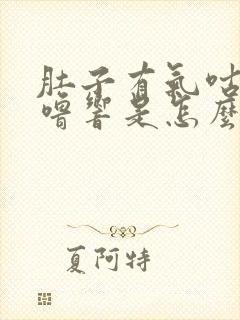 肚子有氣咕
嚕響是怎麼
夏阿特